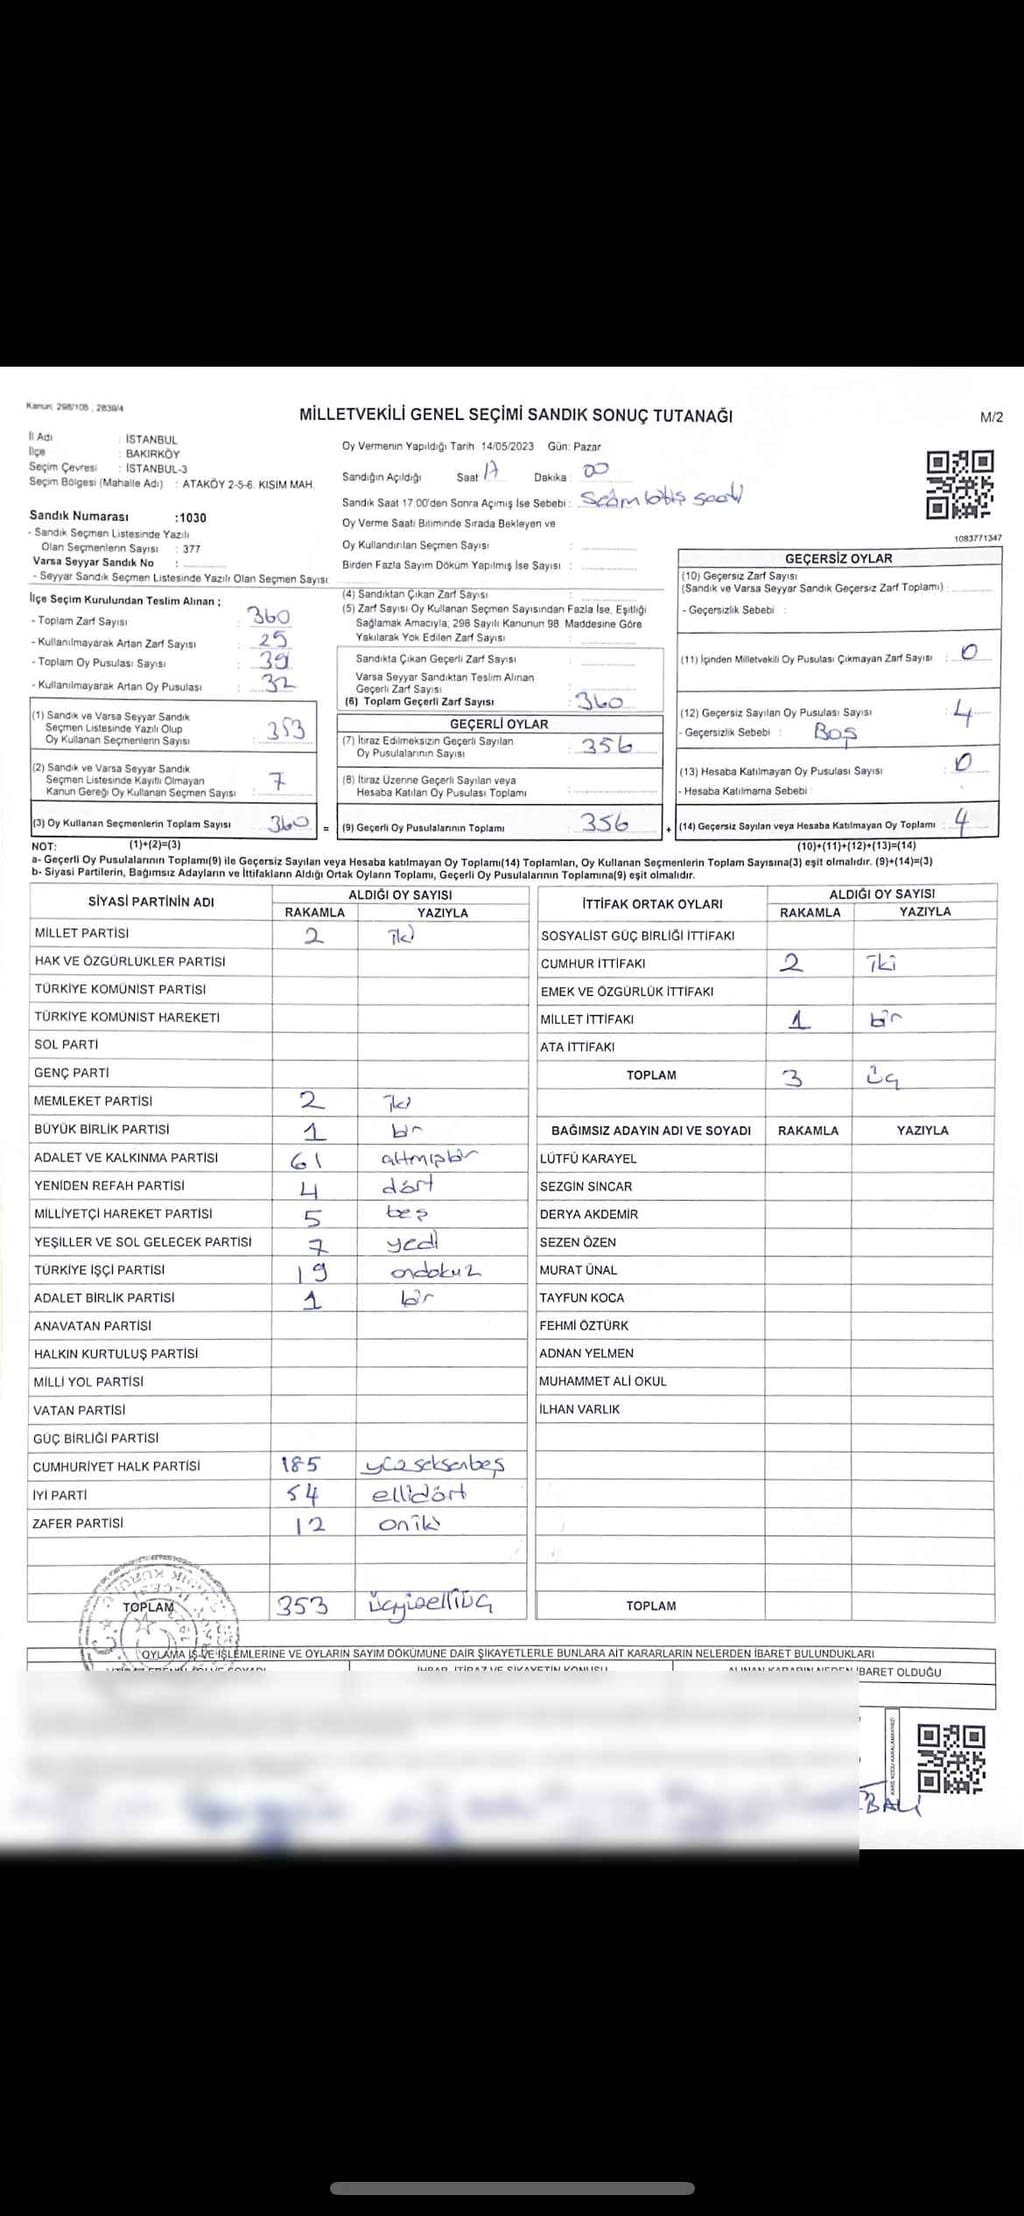 Kanun: 298/105 , 2839/4
MİLLETVEKİLİ GENEL SEÇİMİ SANDIK SONUÇ TUTANAĞI
M/2
İl Adı : İSTANBUL
İlçe : BAKIRKÖY
Seçim Çevresi : İSTANBUL-3
Seçim Bölgesi (Mahalle Adı) : ATAKÖY 2-5-6. KISIM MAH.
Sandık Numarası :1030
- Sandık Seçmen Listesinde Yazılı
Olan Seçmenlerin Sayısı : 377
Varsa Seyyar Sandık No :
- Seyyar Sandık Seçmen Listesinde Yazılı Olan Seçmen Sayısı:
Oy Vermenin Yapıldığı Tarih :14/05/2023 Gün: Pazar
Sandığın Açıldığı Saat : 17 Dakika : 00
Sandık Saat 17.00'den Sonra Açımış İse Sebebi :
Oy Verme Saati Bitiminde Sırada Bekleyen ve
Oy Kullandırılan Seçmen Sayısı :
Birden Fazla Sayım Döküm Yapılmış İse Sayısı :
1083771347
İlçe Seçim Kurulundan Teslim Alınan ;
- Toplam Zarf Sayısı : 360
- Kullanılmayarak Artan Zarf Sayısı : 25
- Toplam Oy Pusulası Sayısı :
- Kullanılmayarak Artan Oy Pusulası : 32
(1) Sandık ve Varsa Seyyar Sandık
Seçmen Listesinde Yazılı Olup
Oy Kullanan Seçmenlerin Sayısı : 353
(2) Sandık ve Varsa Seyyar Sandık
Seçmen Listesinde Kayıtlı Olmayan
Kanun Gereği Oy Kullanan Seçmen Sayısı : 7
(3) Oy Kullanan Seçmenlerin Toplam Sayısı 360 =
(4) Sandıktan Çıkan Zarf Sayısı :
(5) Zarf Sayısı Oy Kullanan Seçmen Sayısından Fazla İse, Eşitliği
Sağlamak Amacıyla, 298 Sayılı Kanunun 98. Maddesine Göre
Yakılarak Yok Edilen Zarf Sayısı :
Sandıkta Çıkan Geçerli Zarf Sayısı :
Varsa Seyyar Sandıktan Teslim Alınan
Geçerli Zarf Sayısı :
(6) Toplam Geçerli Zarf Sayısı : 360
GEÇERLİ OYLAR
(7) İtiraz Edilmeksizin Geçerli Sayılan
Oy Pusulalarının Sayısı : 356
(8) İtiraz Üzerine Geçerli Sayılan veya
Hesaba Katılan Oy Pusulası Toplamı :
(9) Geçerli Oy Pusulalarının Toplamı : 356 +
GEÇERSİZ OYLAR
(10) Geçersiz Zarf Sayısı
(Sandık ve Varsa Seyyar Sandık Geçersiz Zarf Toplamı) :
- Geçersizlik Sebebi :
(11) İçinden Milletvekili Oy Pusulası Çıkmayan Zarf Sayısı : 0
(12) Geçersiz Sayılan Oy Pusulası Sayısı : 4
- Geçersizlik Sebebi : Boş
(13) Hesaba Katılmayan Oy Pusulası Sayısı : 0
- Hesaba Katılmama Sebebi :
(14) Geçersiz Sayılan veya Hesaba Katılmayan Oy Toplamı : 4
NOT: (1)+(2)=(3) (10)+(11)+(12)+(13)=(14)
a- Geçerli Oy Pusulalarının Toplamı(9) ile Geçersiz Sayılan veya Hesaba katılmayan Oy Toplamı(14) Toplamları, Oy Kullanan Seçmenlerin Toplam Sayısına(3) eşit olmalıdır. (9)+(14)=(3)
b- Siyasi Partilerin, Bağımsız Adayların ve İttifakların Aldığı Ortak Oyların Toplamı, Geçerli Oy Pusulalarının Toplamına(9) eşit olmalıdır.
SİYASİ PARTİNİN ADI ALDIĞI OY SAYISI
RAKAMLA YAZIYLA
MİLLET PARTİSİ 2 iki
HAK VE ÖZGÜRLÜKLER PARTİSİ
TÜRKİYE KOMÜNİST PARTİSİ
TÜRKİYE KOMÜNİST HAREKETİ
SOL PARTİ
GENÇ PARTİ
MEMLEKET PARTİSİ 2 iki
BÜYÜK BİRLİK PARTİSİ 1 bir
ADALET VE KALKINMA PARTİSİ 61 altmışbir
YENİDEN REFAH PARTİSİ 4 dört
MİLLİYETÇİ HAREKET PARTİSİ 5 beş
YEŞİLLER VE SOL GELECEK PARTİSİ 7 yedi
TÜRKİYE İŞÇİ PARTİSİ 19 ondokuz
ADALET BİRLİK PARTİSİ 1 bir
ANAVATAN PARTİSİ
HALKIN KURTULUŞ PARTİSİ
MİLLİ YOL PARTİSİ
VATAN PARTİSİ
GÜÇ BİRLİĞİ PARTİSİ
CUMHURİYET HALK PARTİSİ 185 yüzseksenbeş
İYİ PARTİ 54 ellidört
ZAFER PARTİSİ 12 oniki
TOPLAM 353 üçyüzelliüç
İTTİFAK ORTAK OYLARI ALDIĞI OY SAYISI
RAKAMLA YAZIYLA
SOSYALİST GÜÇ BİRLİĞİ İTTİFAKI
CUMHUR İTTİFAKI 2 iki
EMEK VE ÖZGÜRLÜK İTTİFAKI
MİLLET İTTİFAKI 1 bir
ATA İTTİFAKI
TOPLAM 3 üç
BAĞIMSIZ ADAYIN ADI VE SOYADI RAKAMLA YAZIYLA
LÜTFÜ KARAYEL
SEZGİN SİNCAR
DERYA AKDEMİR
SEZEN ÖZEN
MURAT ÜNAL
TAYFUN KOCA
FEHMİ ÖZTÜRK
ADNAN YELMEN
MUHAMMET ALİ OKUL
İLHAN VARLIK
TOPLAM
OYLAMA İŞ VE İŞLEMLERİNE VE OYLARIN SAYIM DÖKÜMÜNE DAİR ŞİKAYETLERLE BUNLARA AİT KARARLARIN NELERDEN İBARET BULUNDUKLARI
İHBAR, İTİRAZ VE ŞİKAYETİN KONUSU ALINAN KARARIN NEDEN İBARET OLDUĞU
BALİ